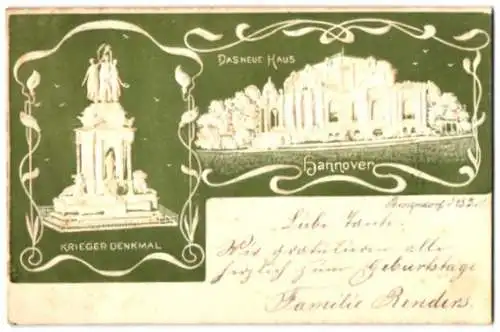 DAS NEUE HAUS
Hannover
KRIEGER DENKMAL
Liebe Tante.
Wir gratulieren alle
herzlich zum Geburtstage
Familie Renders.